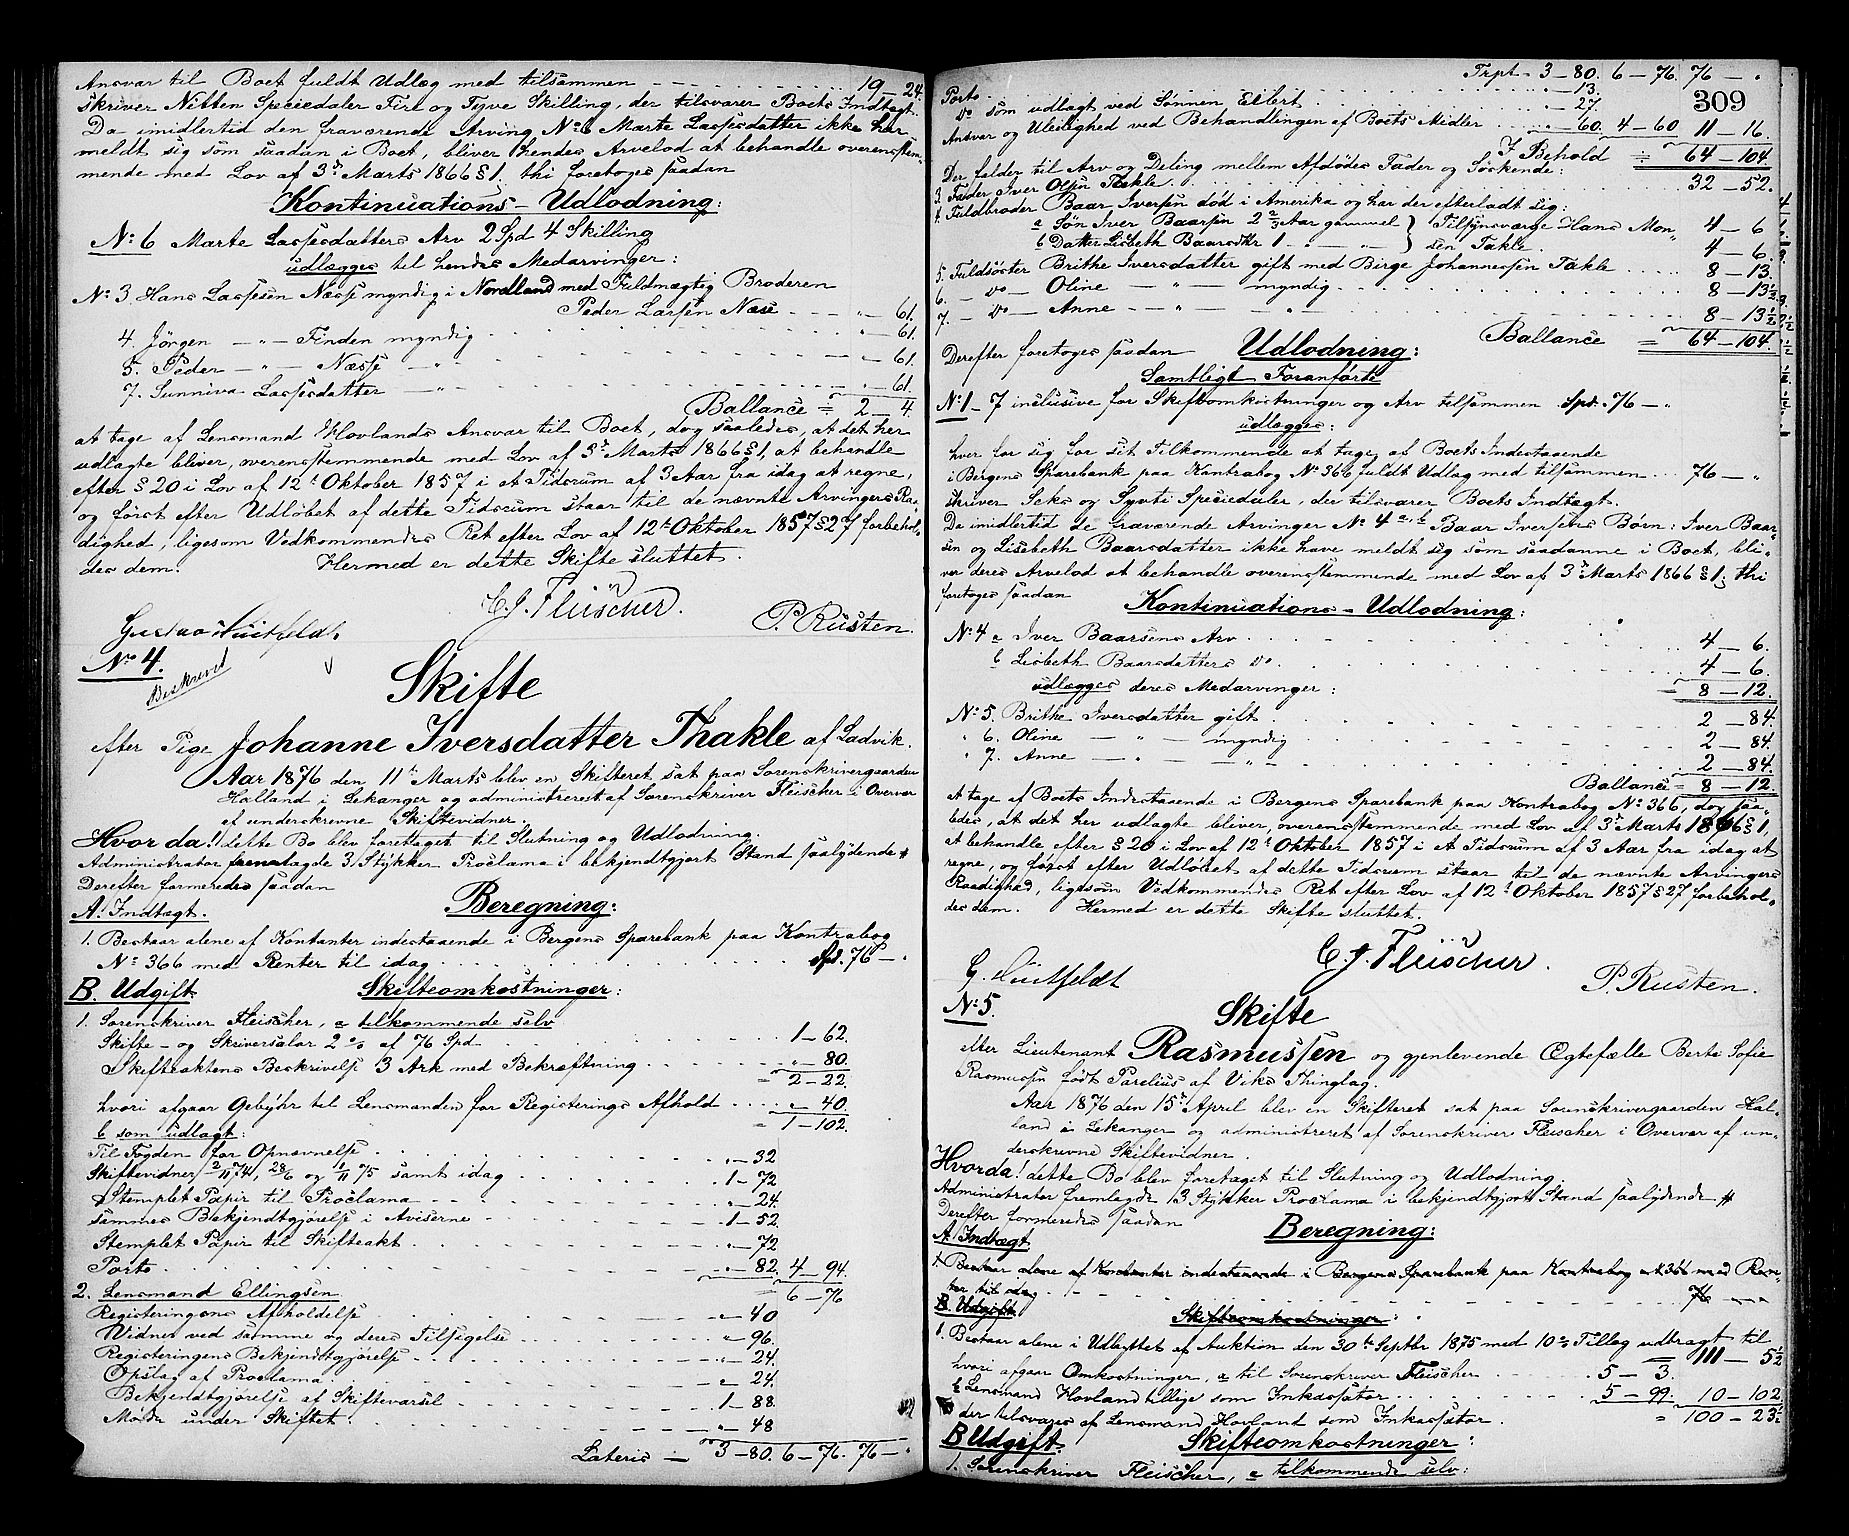 Ansvar til Boet fuldt Udlæg med tilsammen 19 – 24.
skriver Nitten Speciedaler Fire og Tyve Skilling, der tilsvarer Boets Indtægt.
Da imidlertid den fraværende Arving No 6 Marte Lassesdatter ikke har
meldt sig som saadan i Boet, bliver hendes Arvelod at behandle overensstem-
mende med Lov af 3d Marts 1866 § 1, thi foretoges saadan
Kontinuations-Udlodning:
No 6 Marte Lassesdatters Arv 2 Spd 4 Skilling
udlægges til hendes Medarvinger:
No 3. Hans Lassesen Næsse myndig i Nordland med Fuldmægtig Broderen
Peder Larsen Næse „ – 61.
4. Jörgen – „ – Finden myndig „ – 61.
5. Peder – „ – Næsse – „ – „ – 61.
7. Sunniva Lassesdatter – „ – „ – 61.
Ballance = 2 – 4.
at tage af Lensmand Hovlands Ansvar til Boet, dog saaledes, at det her
udlagte bliver, overensstemmende med Lov af 3d Marts 1866 § 1, at behandle
efter § 20 i Lov af 12te Oktober 1857 i et Tidsrum af 3 Aar fra idag at regne,
og först efter Udløbet af dette Tidsrum staar til de nævnte Arvingers Raa-
dighed, ligesom Vedkommendes Ret efter Lov af 12te Oktober 1857 § 27 forbehol-
des dem. Hermed er dette Skifte sluttet.
C. J. Fleischer.
Gustav Huitfeldt. P. Rusten.
No 4.
Beskrevet
Skifte
efter Pige Johanne Iversdatter Thakle af Ladvik.
Aar 1876 den 11te Marts blev en Skifteret sat paa Sorenskrivergaarden
Halland i Lekanger og administreret af Sorenskriver Fleischer i Overvær
af underskrevne Skiftevidner.
Hvor da! dette Bo blev foretaget til Slutning og Udlodning.
Administrator fremlagde 3 Stykker Proclama i bekjendtgjort Stand saalydende #
Derefter formeredes saadan
Beregning:
A. Indtægt.
1. Bestaar alene af Kontanter indestaaende i Bergens Sparebank paa Kontrabog
No 366 med Renter til idag Spd. 76 – „
B. Udgift. Skifteomkostninger:
1. Sorenskriver Fleischer, a tilkommende selv
Skifte- og Skriversalær 2 % af 76 Spd. 1 – 62.
Skifteaktens Beskrivelse 3 Ark med Bekræftning „ – 80.
= 2 – 22.
hvori afgaar Gebyhr til Lensmanden for Registerings Afhold „ – 40
= 1 – 102.
b som udlagt:
Til Fogden for Opnævnelse „ – 32
Skiftevidner 2/11 74, 28/6 og 1/11 75 samt idag 1 – 72
Stemplet Papir til Proclama „ – 24.
sammes Bekjendtgjørelse i Aviserne 1 – 52
Stemplet Papir til Skifteakt „ – 72
Porto „ – 82. 4 – 94.
= 6 – 76
2. Lensmand Ellingsen
Registeringens Afholdelse „ – 40
Vidner ved samme og deres Tilsigelse „ – 96.
Registeringens Bekjendtgjørelse „ – 24.
Opslag af Proclama „ – 24.
Bekjendtgjørelse af Skiftevarsel 1 – 88.
Møde under Skiftet „ – 48
Lateris – 3 – 80. 6 – 76. 76 – „
309
Trpt – 3 – 80. 6 – 76. 76 – „
Porto „ – 13.
do som udlagt ved Sønnen Elbert „ – 27.
Ansvar og Uleilighed ved Behandlingen af Boets Midler „ – 60. 4 – 60 11 – 16.
I Behold = 64 – 104.
Der falder til Arv og Deling mellem Afdødes Fader og Söskende:
3. Fader Iver Olsen Takle 32 – 52.
4. Fuldbroder Baar Iversen död i Amerika og har der efterladt sig:
a Søn Iver Baarsen 2 2/3 Aar gammel } Tilsynsværge Hans Mon- 4 – 6
b Datter Lisbeth Baarsdtr 1 „ – „ – } sen Takle. 4 – 6.
5. Fuldsöster Brithe Iversdatter gift med Birge Johannessen Takle 8 – 13.
6. – do – Oline – „ – myndig 8 – 13½
7. – do – Anne – „ – „ 8 – 13½
Ballance = 64 – 104.
Derefter foretoges saadan Udlodning:
Samtligt Foranførte
No 1 – 7 inclusive for Skifteomkostninger og Arv tilsammen Spd. 76 – „
udlægges:
hver for sig for sit Tilkommende at tage af Boets Indestaaende
i Bergens Sparebank paa Kontrabog No 366 fuldt Udlæg med tilsammen 76 – „
skriver Seks og Syvti Speciedaler, der tilsvarer Boets Indtægt.
Da imidlertid de fraværende Arvinger No 4 a, b Baar Iversens Børn: Iver Baar-
sen og Lisebeth Baarsdatter ikke have meldt sig som saadanne i Boet, bli-
ver deres Arvelod at behandle overensstemmende med Lov af 3d Marts 1866 § 1, thi
foretoges saadan
Kontinuations-Udlodning:
No 4 a Iver Baarsens Arv 4 – 6.
b Lisbeth Baarsdatters do. 4 – 6.
udlægges deres Medarvinger: = 8 – 12.
No 5. Brithe Iversdatter gift 2 – 84.
„ 6. Oline – „ – myndig 2 – 84.
„ 7. Anne – „ – „ – 2 – 84.
Ballance = 8 – 12.
at tage af Boets Indestaaende i Bergens Sparebank paa Kontrabog No 366, dog saa-
ledes, at det her udlagte bliver, overensstemmende med Lov af 3d Marts 1866 § 1,
at behandle efter § 20 i Lov af 12te Oktober 1857 i et Tidsrum af 3 Aar fra idag at
regne, og først efter Udløbet af dette Tidsrum staar til de nævnte Arvingers
Raadighed, ligesom Vedkommendes Ret efter Lov af 12te Oktober 1857 § 27 forbehol-
des dem. Hermed er dette Skifte sluttet.
C. J. Fleischer.
G. Huitfeldt P. Rusten.
No 5.
Skifte
efter Lieutenant Rasmussen og gjenlevende Ægtefælle Berte Sofie
Rasmussen født Parelius af Viks Thinglag.
Aar 1876 den 15de April blev en Skifteret sat paa Sorenskrivergaarden Hal-
land i Lekanger og administreret af Sorenskriver Fleischer i Overvær af un-
derskrevne Skiftevidner.
Hvor da! dette Bo blev foretaget til Slutning og Udlodning.
Administrator fremlagde 3 Stykker Proclama i bekjendtgjort Stand saalydende #
Derefter formeredes saadan Beregning:
A. Indtægt.
1. Bestaar alene af Kontanter indestaaende i Bergens Sparebank paa Kontrabog No 366 med Ren-
ter til idag 76 – „
B. Udgift. Skifteomkostninger:
1. Bestaar alene i Udbyttet af Auktion den 30te Septbr 1875 med 10 % Tillæg udbragt til 111 – 5½
hvori afgaar Omkostninger, a til Sorenskriver Fleischer 5 – 3.
b Lensmand Hovland tillige som Inkassator 5 – 99. 10 – 102.
der tilsvares af Lensmand Hovland som Inkassator. „ 100 – 23½
B. Udgift. Skifteomkostninger:
1. Sorenskriver Fleischer, a tilkommende selv: